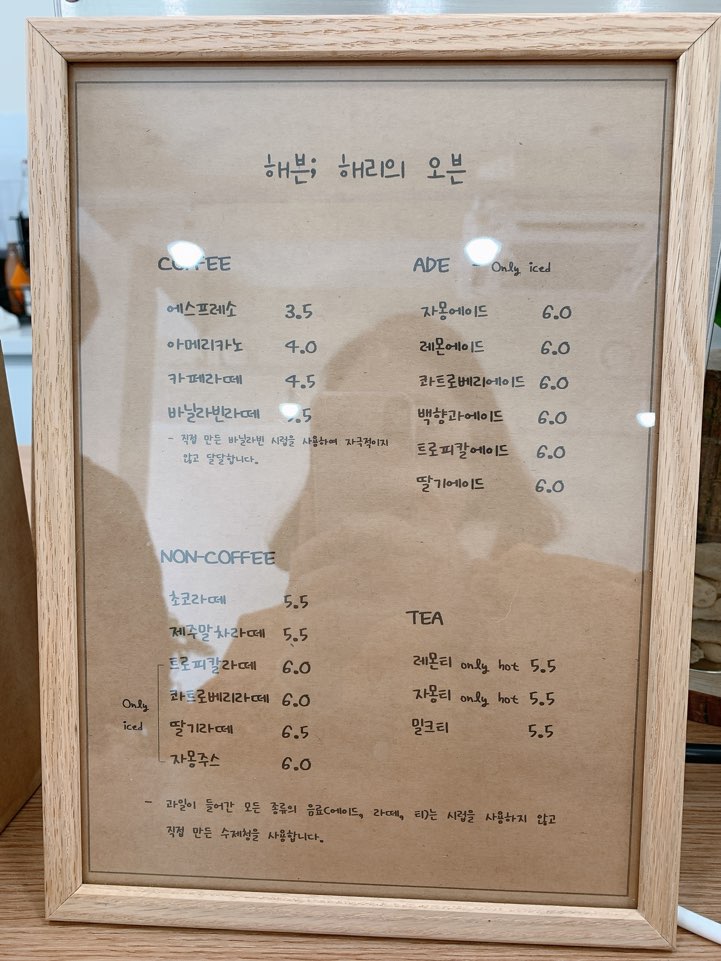 해븐; 해리의 오븐
COFFEE
에스프레소 3.5
아메리카노 4.0
카페라떼 4.5
바닐라빈라떼
- 직접 만든 바닐라빈 시럽을 사용하여 자극적이지
않고 달달합니다.
NON-COFFEE
초코라떼 5.5
제주말차라떼 5.5
트로피칼라떼 6.0
콰트로베리라떼 6.0
딸기라떼 6.5
자몽주스 6.0
Only
iced
ADE - Only iced
자몽에이드 6.0
레몬에이드 6.0
콰트로베리에이드 6.0
백향과에이드 6.0
트로피칼에이드 6.0
딸기에이드 6.0
TEA
레몬티 only hot 5.5
자몽티 only hot 5.5
밀크티 5.5
- 과일이 들어간 모든 종류의 음료(에이드, 라떼, 티)는 시럽을 사용하지 않고
직접 만든 수제청을 사용합니다.